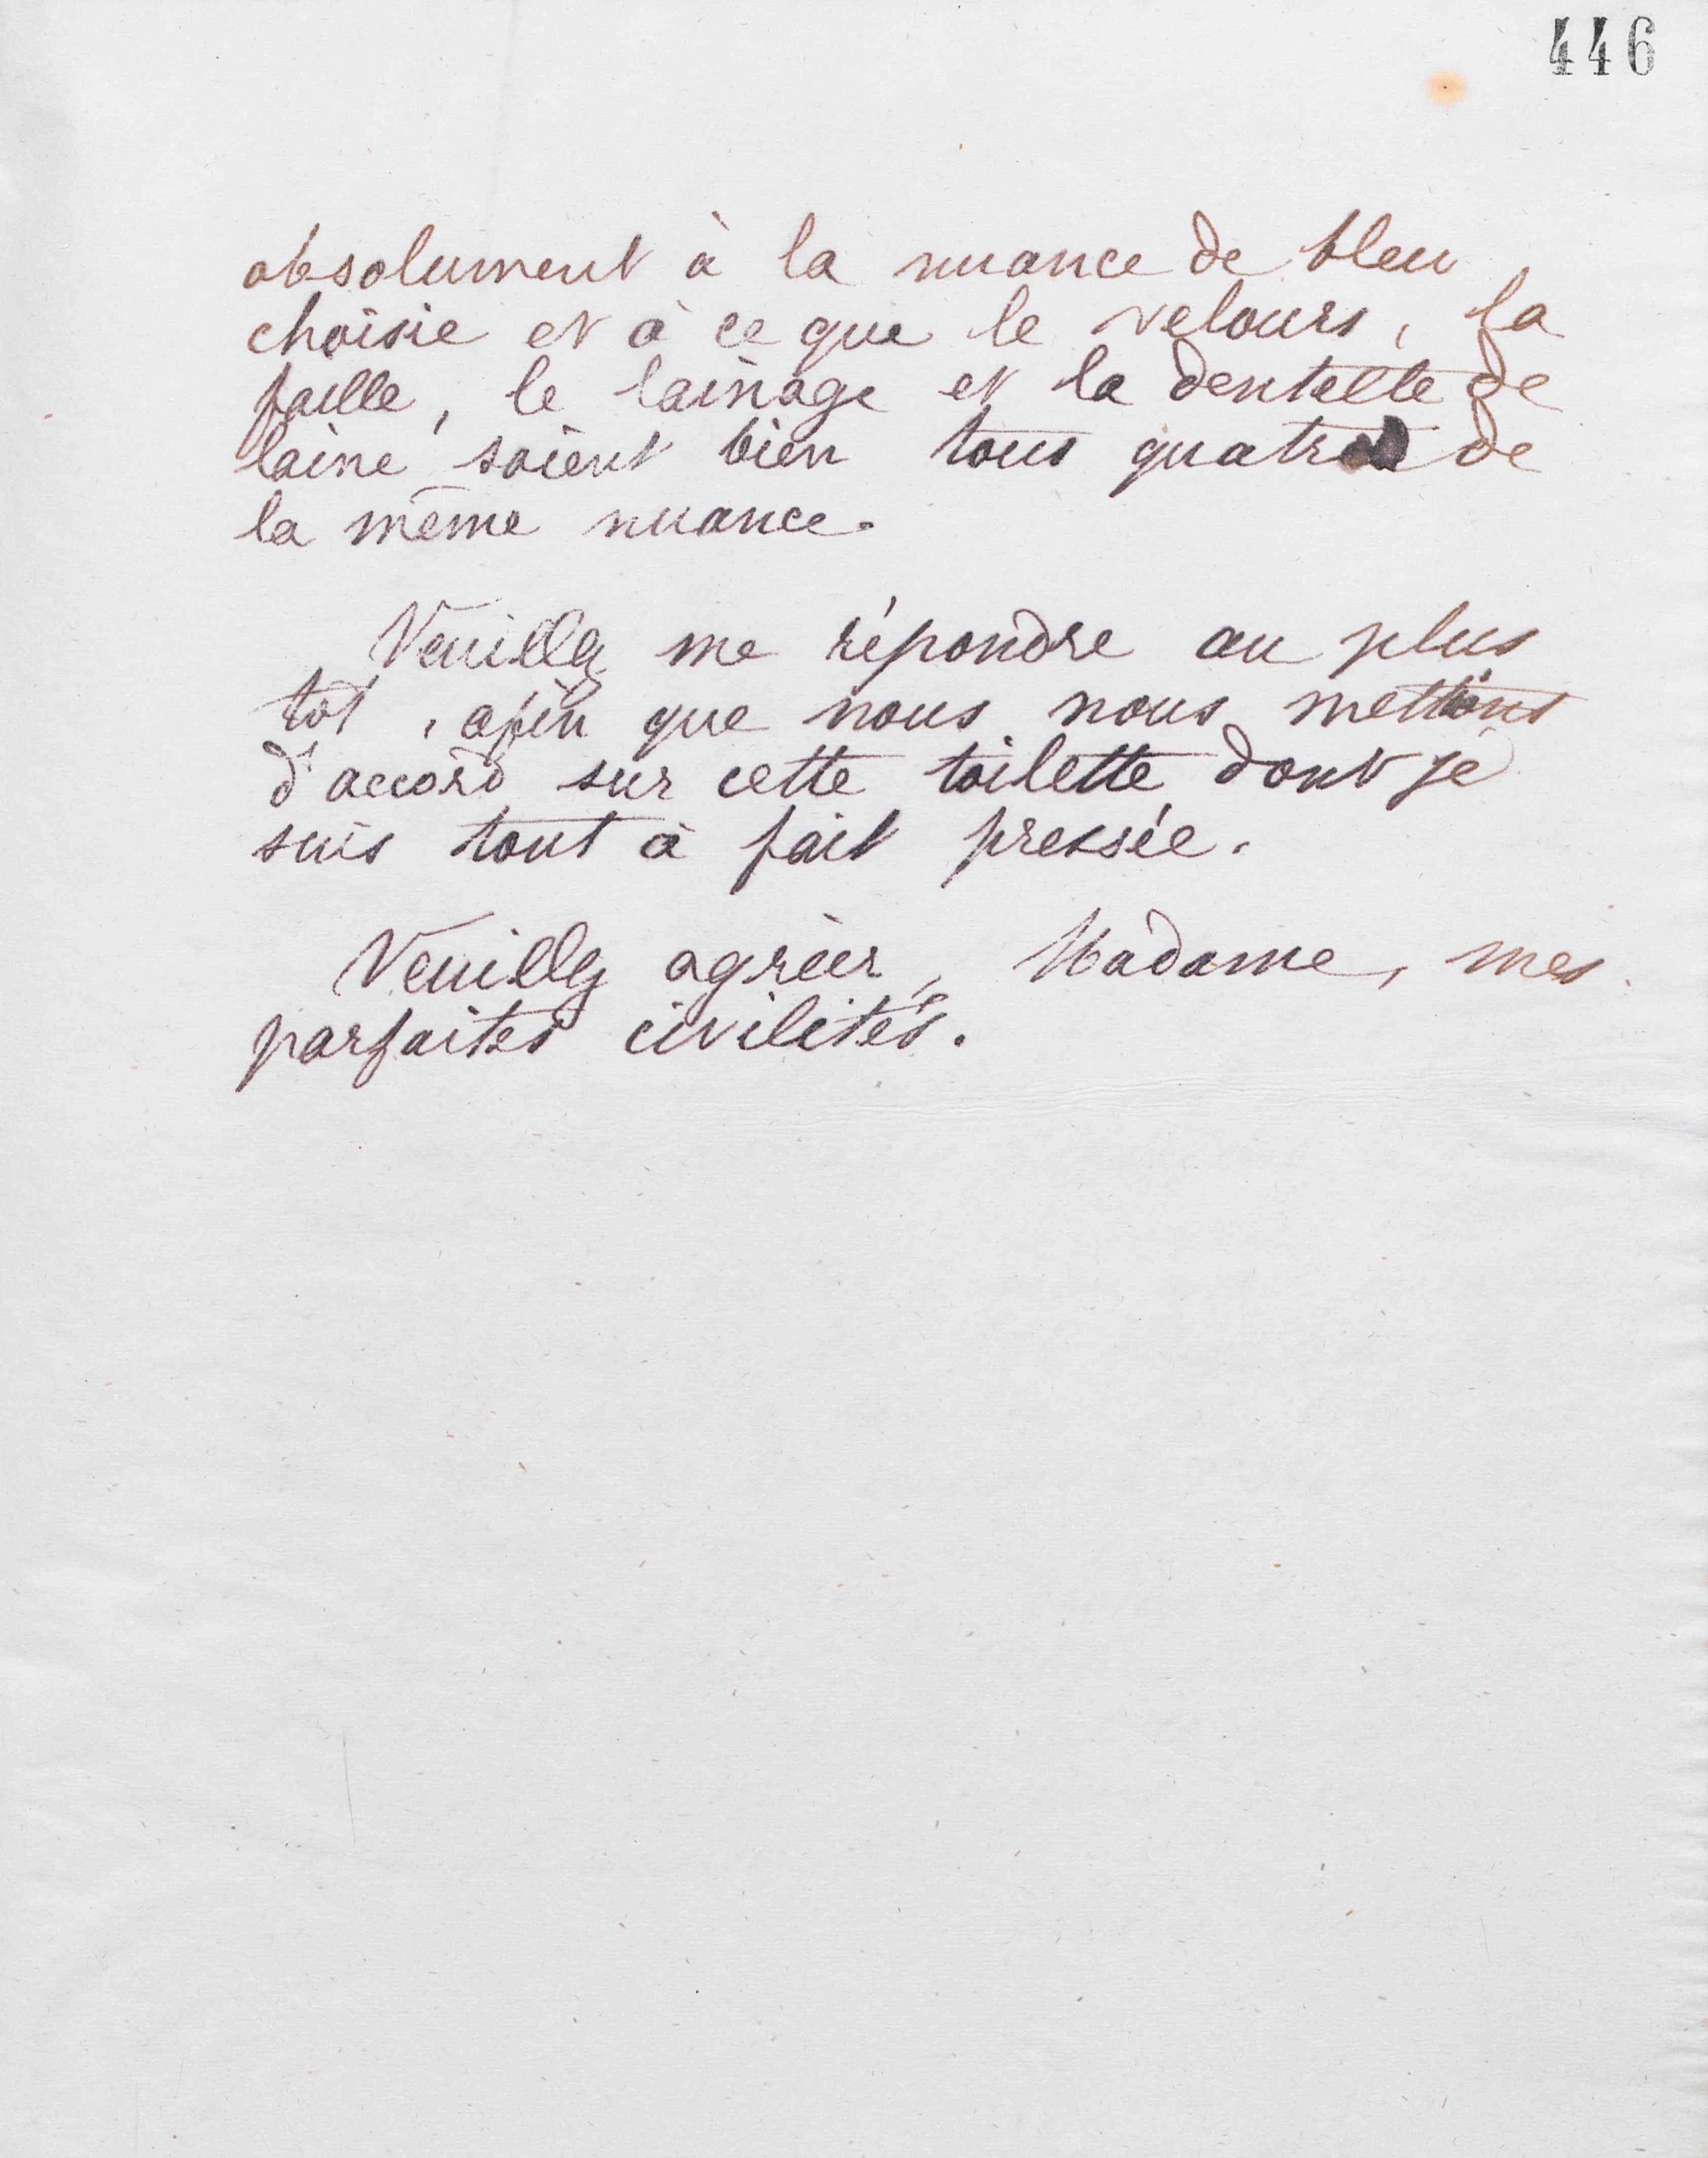 446
absolument à la nuance de bleu
choisie et à ce que le velours, la
faille, le lainage et la dentelle de
laine soient bien tous quatre de
la même nuance.
Veuillez me répondre au plus
tôt, afin que nous nous mettions
d'accord sur cette toilette dont je
suis tout à fait pressée.
Veuillez agréer, Madame, mes
parfaites civilités.